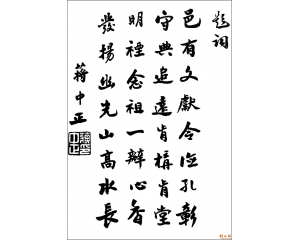 題詞
邑有文獻令德孔彰
守典追遠肯構肯堂
明禋念祖一瓣心香
發揚幽光山高水長
蔣中正